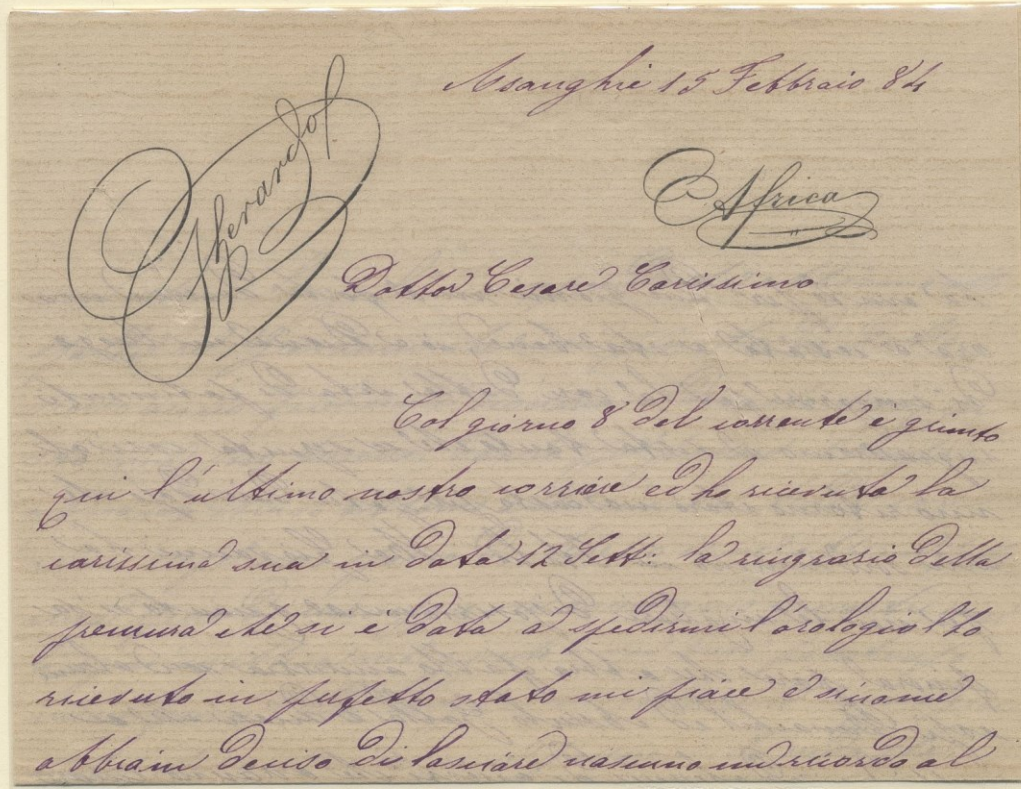 Msanghie 15 Febbraio 84
Gherardo f.
C. Africa
Dottor Cesare Carissimo
Col giorno 8 del corrente è giunto
qui l'ultimo nostro corriere ed ho ricevuta la
carissima sua in data 12 Sett: la ringrazio della
premura che si è data a spedirmi l'orologio l'ho
ricevuto in perfetto stato mi piace e siccome
abbiam deciso di lasciare nasuno un ricordo al